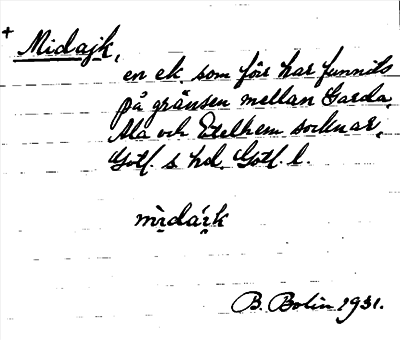 + Midajk,
en ek som förr har funnits
på gränsen mellan Garda,
Ala och Etelhem socknar,
Gotl. s. hd. Gotl. l.
mìdáik
B. Bolin 1931.